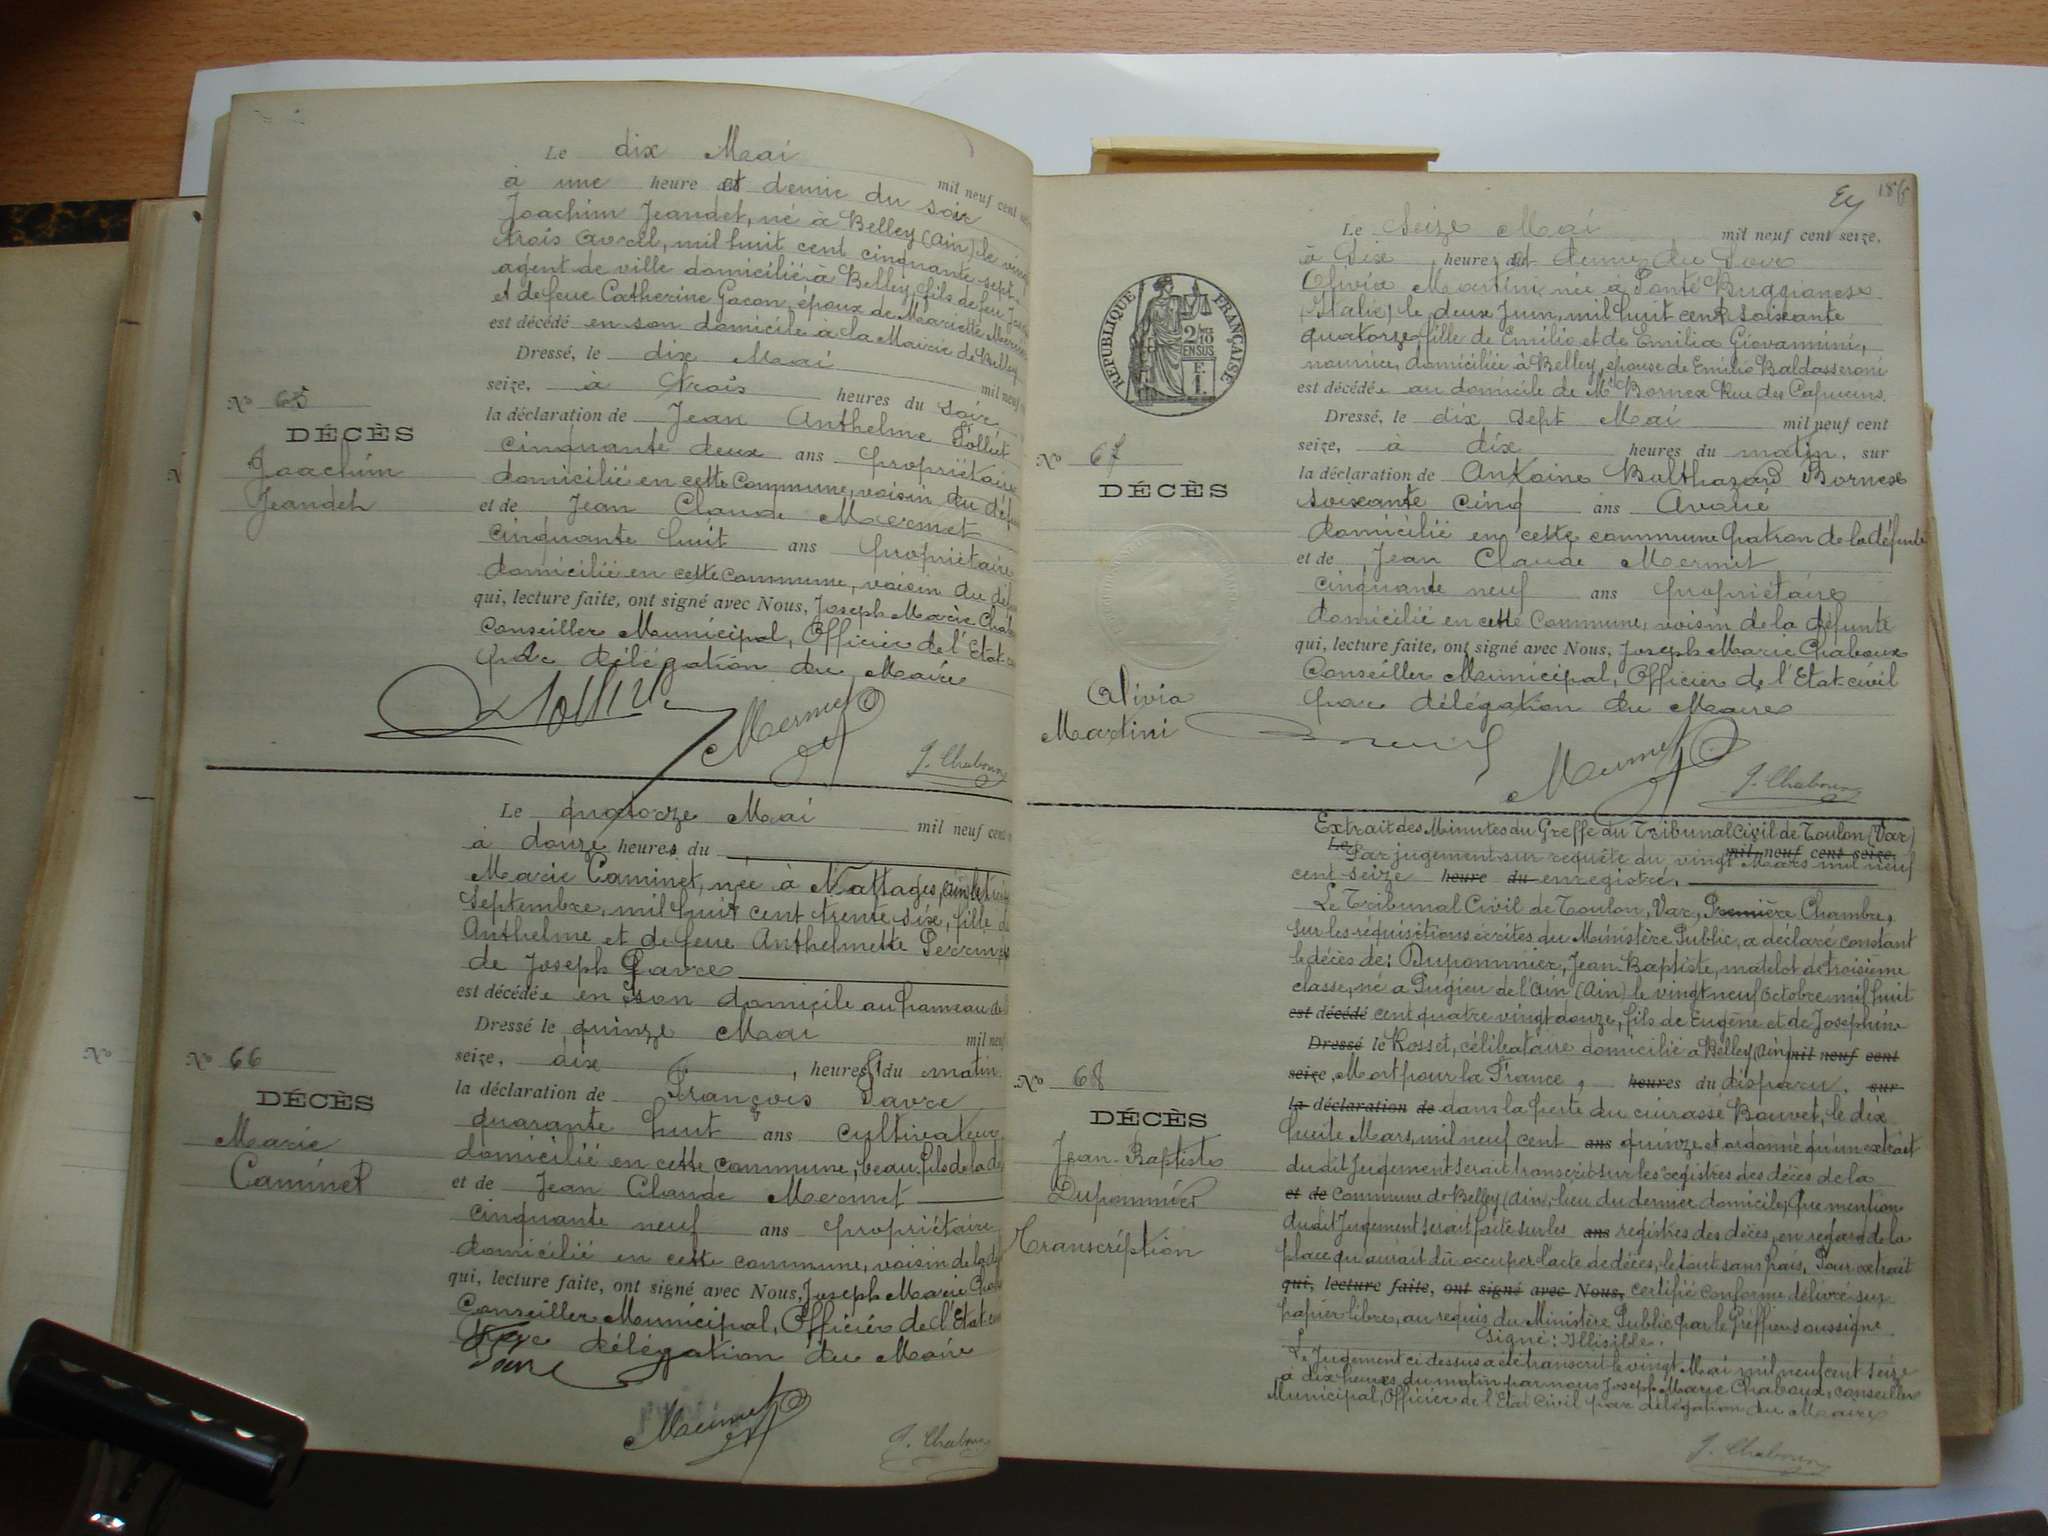 Le dix Mai mil neuf cent
à une heure et demie du soir
Joachim Jeandet, né à Belley (Ain) le vingt
trois avril, mil huit cent cinquante sept
agent de ville domicilié à Belley, fils de feu
et de feue Catherine Gacon, époux de Mariette
est décédé en son domicile à la Mairie de Belley
Dressé, le dix Mai mil neuf
seize, à trois heures du soir,
la déclaration de Jean Anthelme Pollet
cinquante deux ans propriétaire
domicilié en cette Commune, voisin du
et de Jean Claude Mermet
cinquante huit ans propriétaire
domicilié en cette commune, voisin du
qui, lecture faite, ont signé avec Nous, Joseph Marie
Conseiller Municipal, Officier de l'Etat
par délégation du Maire
No 65
DÉCÈS
Joachim
Jeandet
Mermet
J. Chaboux
Le quatorze Mai mil neuf cent
à douze heures du
Marie Caminet, née à Nattages,
Septembre, mil huit cent trente six, fille
Anthelme et de feue Anthelmette
de Joseph Favre
est décédée en son domicile au hameau de
Dressé le quinze Mai mil neuf
seize, dix heures du matin
la déclaration de François Favre
quarante huit ans cultivateur
domicilié en cette commune, beau-fils de la
et de Jean Claude Mermet
cinquante neuf ans propriétaire
domicilié en cette commune, voisin de la
qui, lecture faite, ont signé avec Nous, Joseph Marie
Conseiller Municipal, Officier de l'Etat
par délégation du Maire
No 66
DÉCÈS
Marie
Caminet
Mermet
J. Chaboux
RÉPUBLIQUE FRANÇAISE
2/10 EN SUS
Le Seize Mai mil neuf cent seize,
à dix heures et demie du soir
Olivia Martini, née à Ponte Buggianese
(Italie) le deux Juin, mil huit cent soixante
quatorze, fille de Emilio et de Emilia Giovannini,
nourrice, domiciliée à Belley, épouse de Emilio Baldasseroni
est décédée au domicile de Mr Bornex Rue des Capucins.
Dressé, le dix sept Mai mil neuf cent
seize, à dix heures du matin, sur
la déclaration de Antoine Balthazard Bornex
soixante cinq ans Avoué
domicilié en cette commune patron de la défunte
et de Jean Claude Mermet
cinquante neuf ans propriétaire
domicilié en cette Commune, voisin de la défunte
qui, lecture faite, ont signé avec Nous, Joseph Marie Chaboux
Conseiller Municipal, Officier de l'Etat-civil
par délégation du Maire
No 67
DÉCÈS
Olivia
Martini
Mermet
J. Chaboux
Extrait des Minutes du Greffe du Tribunal Civil de Toulon (Var)
Le Par jugement sur requête du vingt Mars mil neuf mil neuf cent seize.
cent seize heure du enregistré,
Le Tribunal Civil de Toulon, Var, Première Chambre,
sur les réquisitions écrites du Ministère Public, a déclaré constant
le décès de: Dupommier, Jean-Baptiste, matelot de troisième
classe, né à Pugieu de l'Ain (Ain) le vingt neuf Octobre mil huit
est décédé cent quatre vingt douze, fils de Eugène et de Joséphine
Dressé le Rosset, célibataire domicilié à Belley (Ain) mil neuf cent
seize, Mort pour la France, heures du disparu, sur
la déclaration de dans la perte du cuirassé Bouvet, le dix
huit Mars, mil neuf cent ans quinze et ordonné qu'un extrait
du dit Jugement serait transcrit sur les registres des décès de la
et de Commune de Belley (Ain), lieu du dernier domicile, Que mention
du dit Jugement serait faite sur les ans registres des décès, en regard de la
place qu'aurait dû occuper l'acte de décès, le tout sans frais, Pour extrait
qui, lecture faite, ont signé avec Nous, certifié conforme délivré sur
papier libre, au requis du Ministère Public par le Greffier soussigné.
Signé: Illisible.
Le Jugement ci dessus a été transcrit le vingt Mai mil neuf cent seize
à dix heures du matin par nous Joseph Marie Chaboux, conseiller
Municipal, Officier de l'Etat Civil par délégation du Maire
No 68
DÉCÈS
Jean-Baptiste
Dupommier
Transcription
J. Chaboux